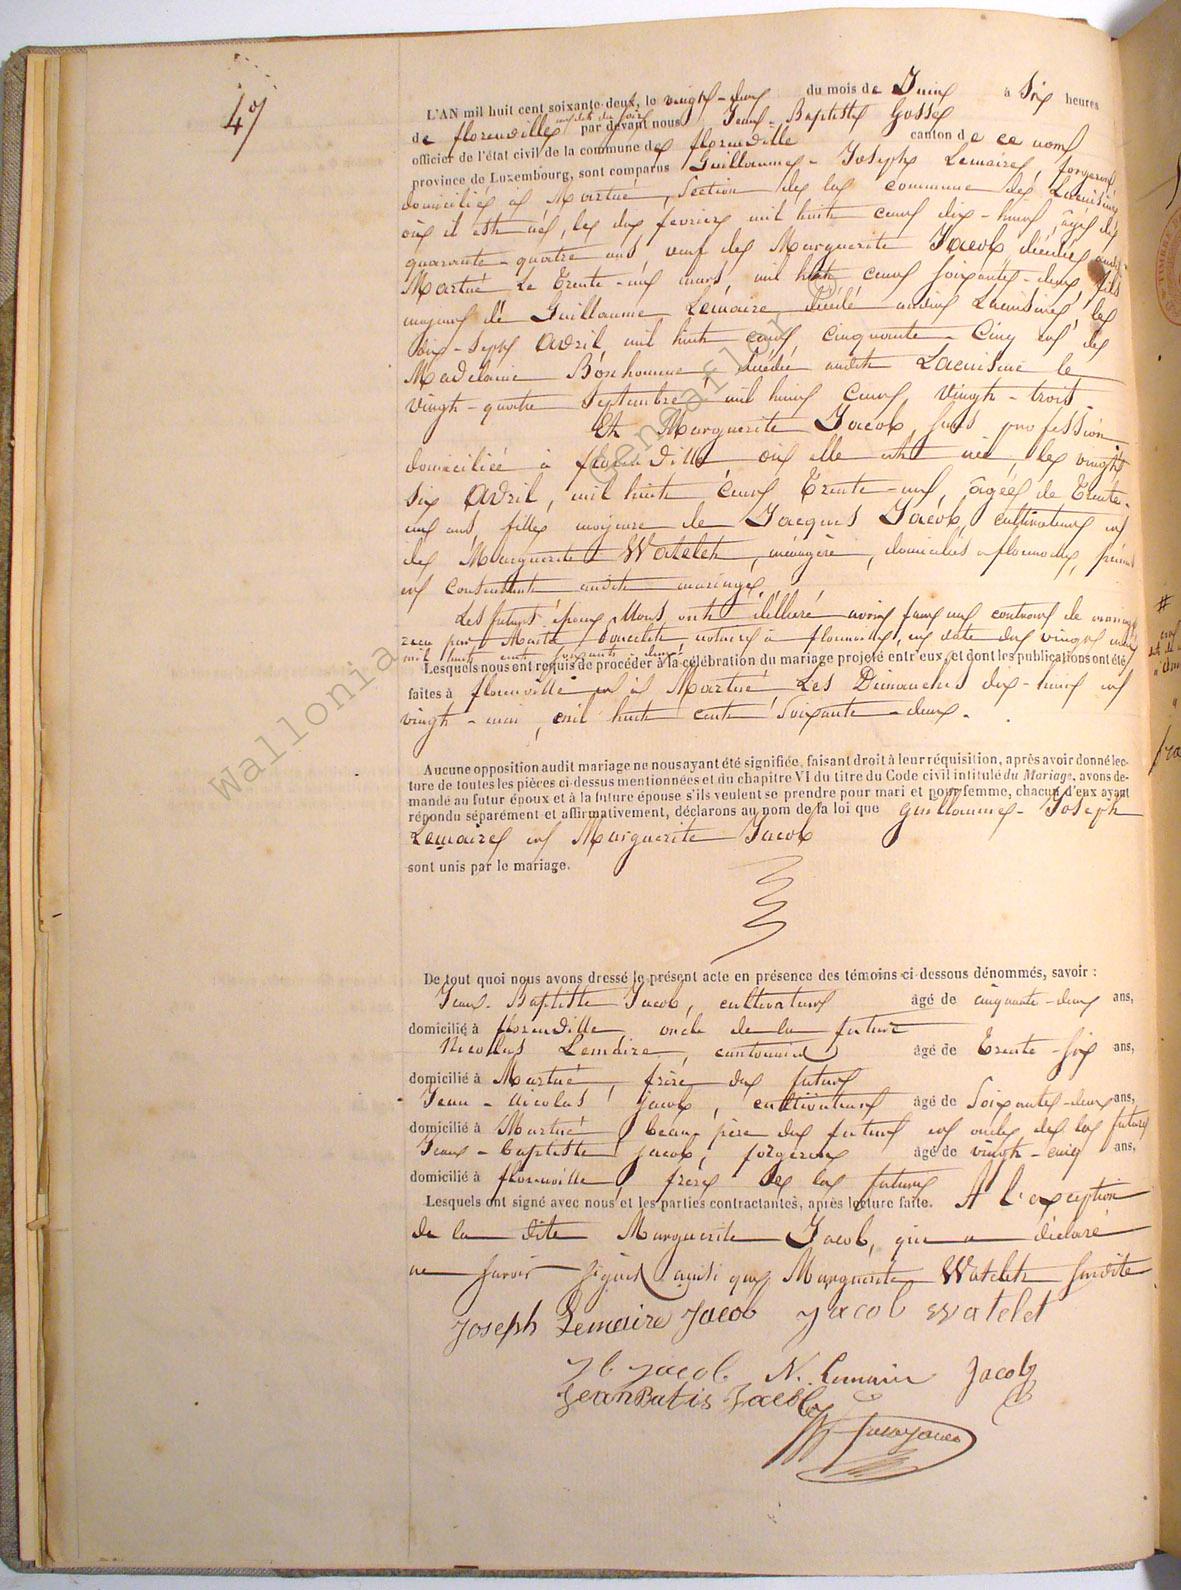 47
L'AN mil huit cent soixante-deux, le vingt-deux du mois de Juin à Six heures
de florenville par devant nous Jean-Baptiste Gosse
officier de l'état civil de la commune de florenville canton de ce nom
province de Luxembourg, sont comparus Guillaume-Joseph Lemaire, forgeron
domicilié à Martué, Section de la commune de Lacuisine
où il est né, le deux février mil huit cent dix-huit, âgé de
quarante-quatre ans, veuf de Marguerite Jacob, décédée audit
Martué Le Trente-un mars, mil huit cent soixante-deux, fils
majeur de Guillaume Lemaire décédé audit Lacuisine le
dix-sept Avril mil huit cent cinquante-Cinq et de
Madelaine Bonhomme, décédée audit Lacuisine le
vingt-quatre Septembre mil huit cent vingt-trois
Et Marguerite Jacob, sans profession
domiciliée à florenville où elle est née, le vingt
six Avril, mil huit cent Trente-un, âgée de Trente-
un ans, fille majeure de Jacques Jacob, cultivateur et
de Marguerite Watelet, ménagère, domiciliés à florenville, présents
et consentants audit mariage,
Les futurs époux Nous ont déclaré avoir fait un contrat de mariage
reçu par Maître notaire à florenville, en date du vingt
mil huit cent soixante-deux
Lesquels nous ont requis de procéder à la célébration du mariage projeté entr'eux, et dont les publications ont été
faites à florenville et à Martué Les Dimanches dix-huit et
vingt- mai, mil huit cent Soixante-deux.
Aucune opposition audit mariage ne nous ayant été signifiée, faisant droit à leur réquisition, après avoir donné lec-
ture de toutes les pièces ci-dessus mentionnées et du chapitre VI du titre du Code civil intitulé du Mariage, avons de-
mandé au futur époux et à la future épouse s'ils veulent se prendre pour mari et pour femme, chacun d'eux ayant
répondu séparément et affirmativement, déclarons au nom de la loi que Guillaume-Joseph
Lemaire et Marguerite Jacob
sont unis par le mariage.
De tout quoi nous avons dressé le présent acte en présence des témoins ci-dessous dénommés, savoir :
Jean-Baptiste Jacob, cultivateur âgé de cinquante-deux ans,
domicilié à florenville, oncle de la future
Nicolas Lemaire, cantonnier âgé de Trente-six ans,
domicilié à Martué, frère du futur
Jean-Nicolas Jacob, cultivateur âgé de Soixante-deux ans,
domicilié à Martué, beau-père du futur et oncle de la future
Jean-baptiste Jacob, forgeron âgé de vingt-cinq ans,
domicilié à florenville, frère de la future
Lesquels ont signé avec nous et les parties contractantes, après lecture faite. A l'exception
de la dite Marguerite Jacob, qui a déclaré
ne savoir signer ainsi que Marguerite Watelet susdite
Joseph Lemaire Jacob Jacob Watelet
J b Jacob N. Lemaire Jacob
Jean Batis Jacob
Wallonia Genaflor ©